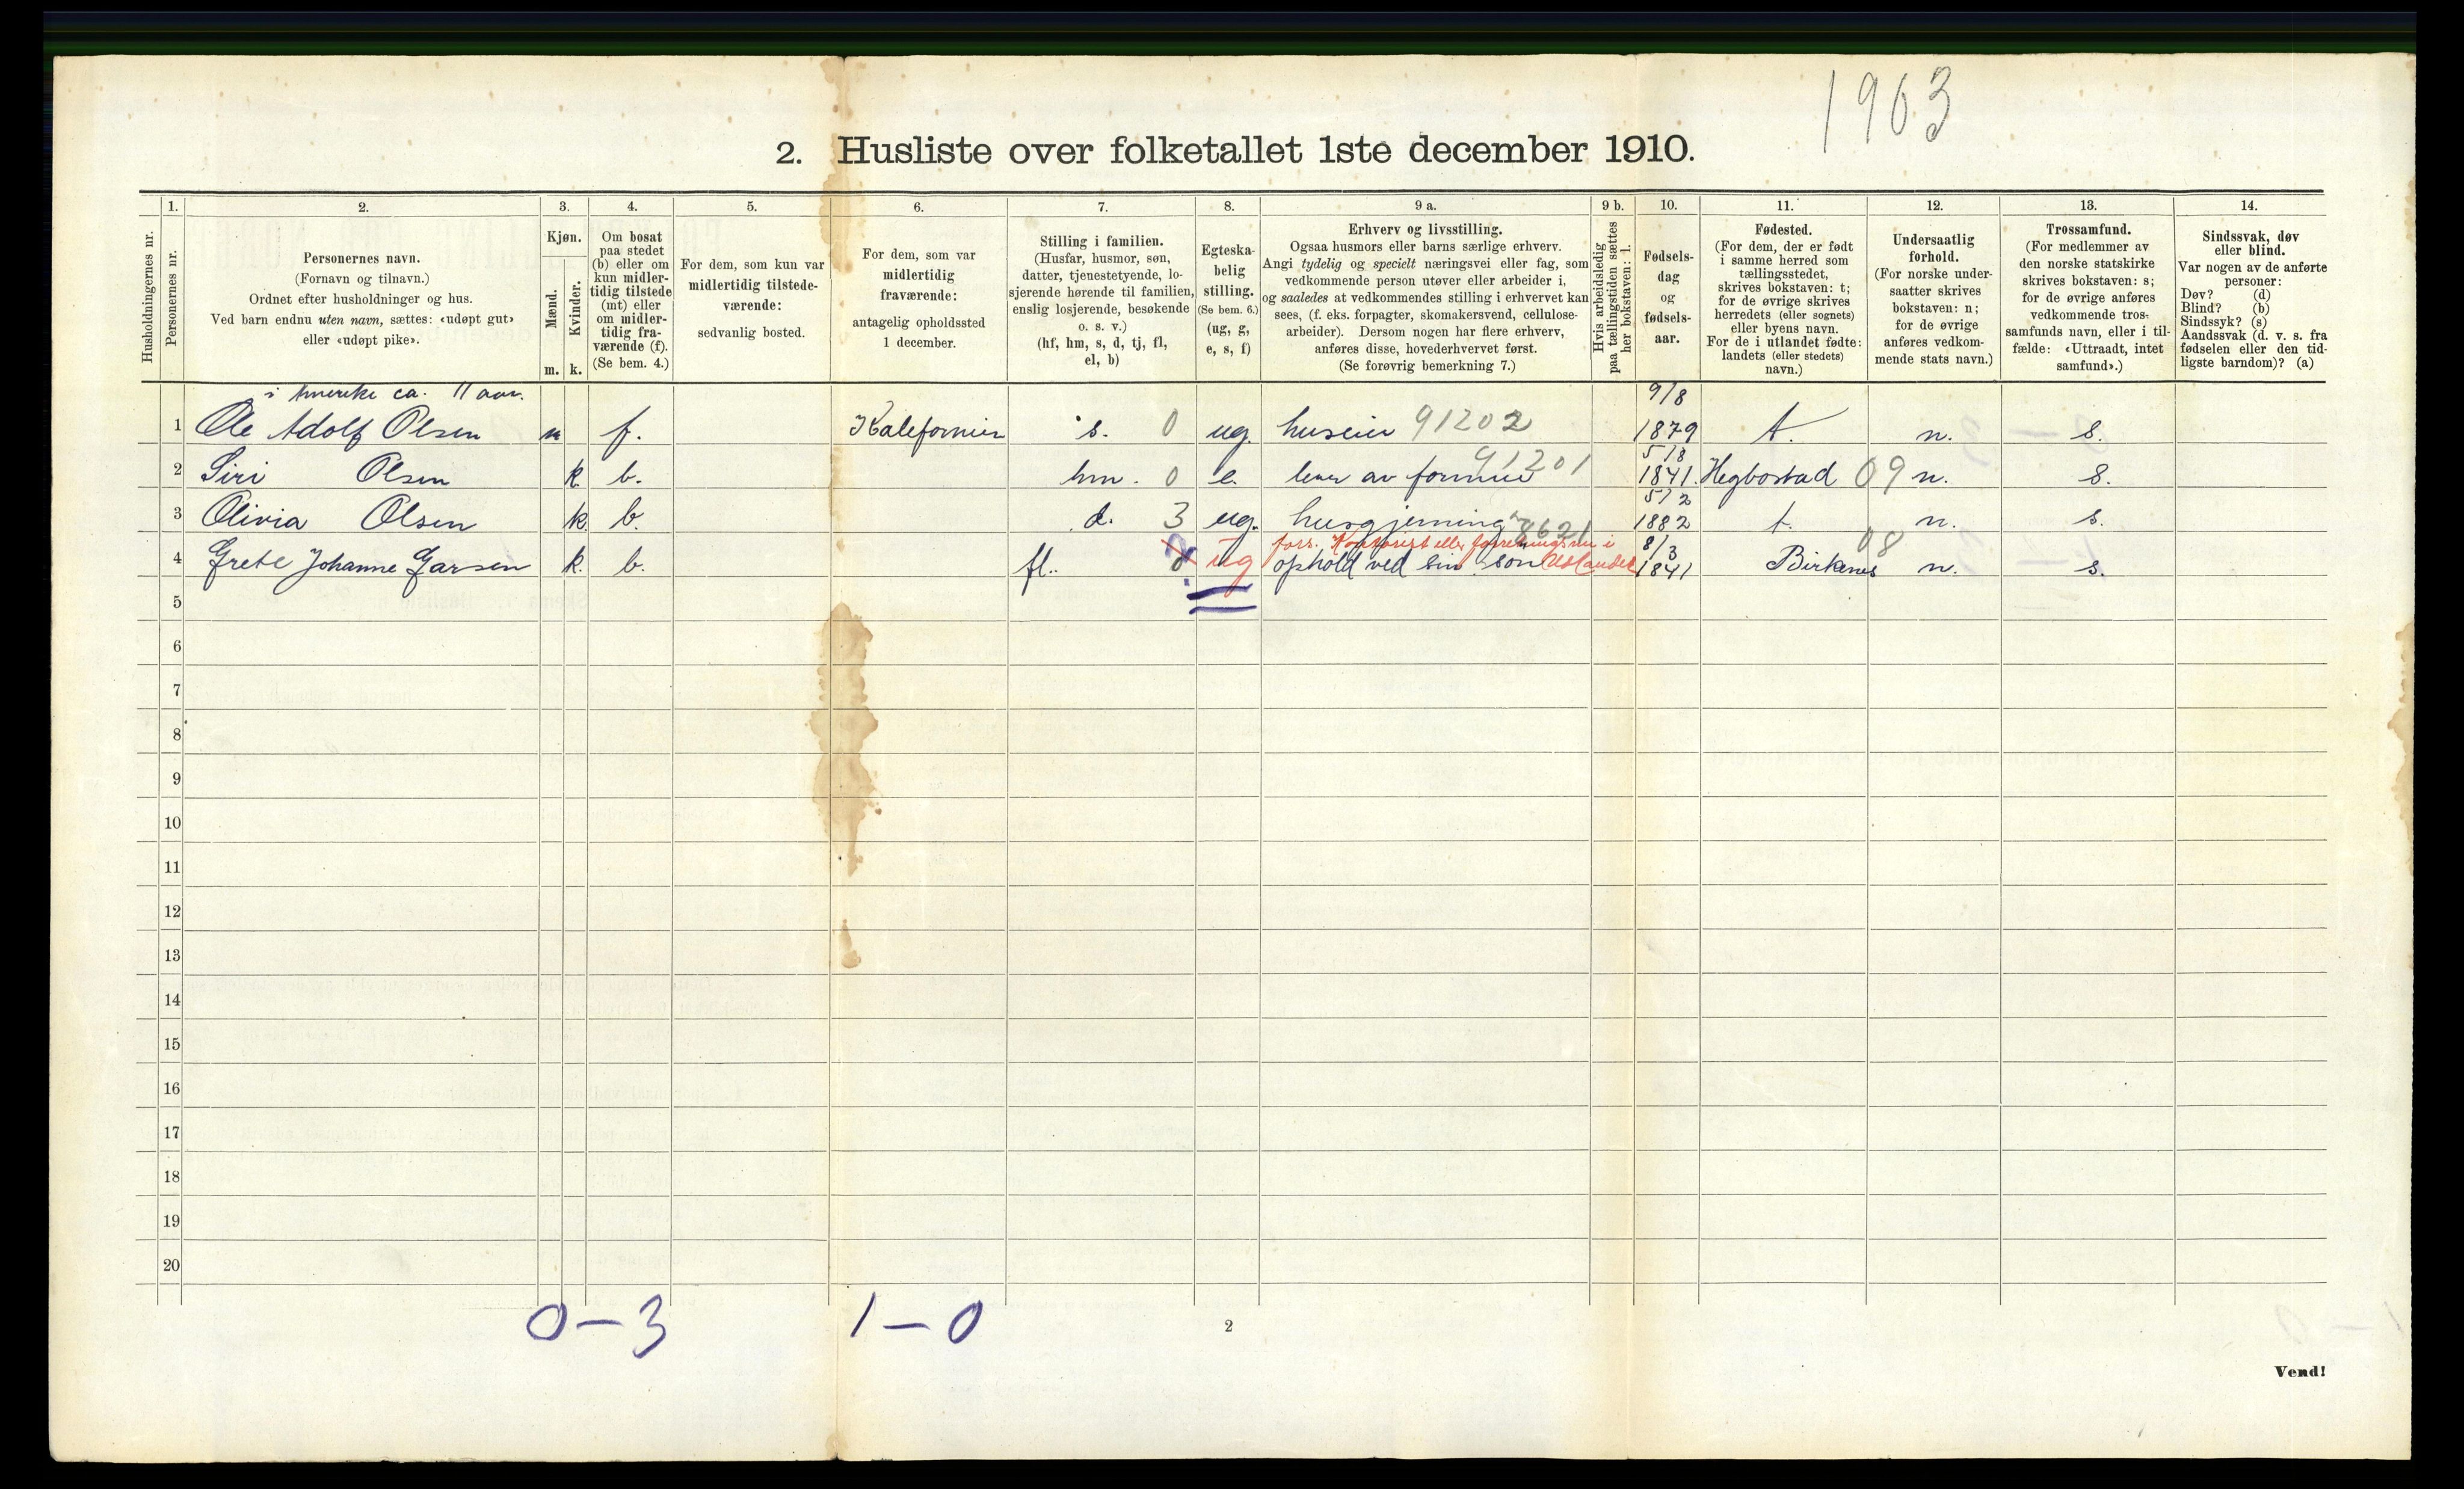 1903
2. Husliste over folketallet 1ste december 1910.
Husholdningernes nr.
1.
Personernes nr.
2.
Personernes navn.
(Fornavn og tilnavn.)
Ordnet efter husholdninger og hus.
Ved barn endnu uten navn, sættes: «udøpt gut»
eller «udøpt pike».
3.
Kjøn.
Mænd.
Kvinder.
m. k.
4.
Om bosat
paa stedet
(b) eller om
kun midler-
tidig tilstede
(mt) eller
om midler-
tidig fra-
værende (f).
(Se bem. 4.)
5.
For dem, som kun var
midlertidig tilstede-
værende:
sedvanlig bosted.
6.
For dem, som var
midlertidig
fraværende:
antagelig opholdssted
1 december.
7.
Stilling i familien.
(Husfar, husmor, søn,
datter, tjenestetyende, lo-
sjerende hørende til familien,
enslig losjerende, besøkende
o. s. v.)
(hf, hm, s, d, tj, fl,
el, b)
8.
Egteska-
belig
stilling.
(Se bem. 6.)
(ug, g,
e, s, f)
9 a.
Erhverv og livsstilling.
Ogsaa husmors eller barns særlige erhverv.
Angi tydelig og specielt næringsvei eller fag, som
vedkommende person utøver eller arbeider i,
og saaledes at vedkommendes stilling i erhvervet kan
sees, (f. eks. forpagter, skomakersvend, cellulose-
arbeider). Dersom nogen har flere erhverv,
anføres disse, hovederhvervet først.
(Se forøvrig bemerkning 7.)
9 b.
Hvis arbeidsledig
paa tællingstiden sættes
her bokstaven: l.
10.
Fødsels-
dag
og
fødsels-
aar.
11.
Fødested.
(For dem, der er født
i samme herred som
tællingsstedet,
skrives bokstaven: t;
for de øvrige skrives
herredets (eller sognets)
eller byens navn.
For de i utlandet fødte:
landets (eller stedets)
navn.)
12.
Undersaatlig
forhold.
(For norske under-
saatter skrives
bokstaven: n;
for de øvrige
anføres vedkom-
mende stats navn.)
13.
Trossamfund.
(For medlemmer av
den norske statskirke
skrives bokstaven: s;
for de øvrige anføres
vedkommende tros-
samfunds navn, eller i til-
fælde: «Uttraadt, intet
samfund».)
14.
Sindssvak, døv
eller blind.
Var nogen av de anførte
personer:
Døv? (d)
Blind? (b)
Sindssyk? (s)
Aandssvak (d. v. s. fra
fødselen eller den tid-
ligste barndom)? (a)
i Amerike ca. 11 aar. 9/8
1 Ole Adolf Olsen m f. Kalefornien s. 0 ug. huseier 91202 1879 t. n. s.
91201 5/8
2 Siri Olsen k b. hm. 0 e. lever av formue 1841. Hegbostad 09 n. s.
5/2
3 Olivia Olsen k. b. d. 3 ug. husgjerning 1882 t. n. s.
fors. Kontorist eller 8/3 08
4 Grete Johanne Garsen k. b. fl. ug ophold ved sin søn 1841 Birkenes n. s.
5
6
7
8
9
10
11
12
13
14
15
16
17
18
19
20
0-3 1-0
2
Vend!